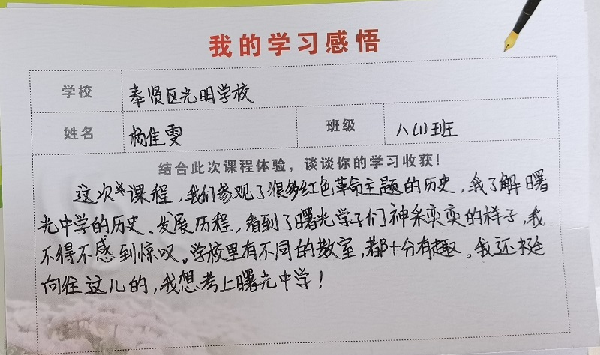 我的学习感悟
学校 奉贤区光明学校
姓名 杨佳雯 班级 八(1)班
结合此次课程体验，谈谈你的学习收获！
这次课程，我们参观了很多红色革命主题的历史，我了解曙
光中学的历史、发展历程，看到了曙光学子们神采奕奕的样子，我
不得不感到惊叹。学校里有不同的教室，都十分有趣。我还挺
向往这儿的，我想考上曙光中学！